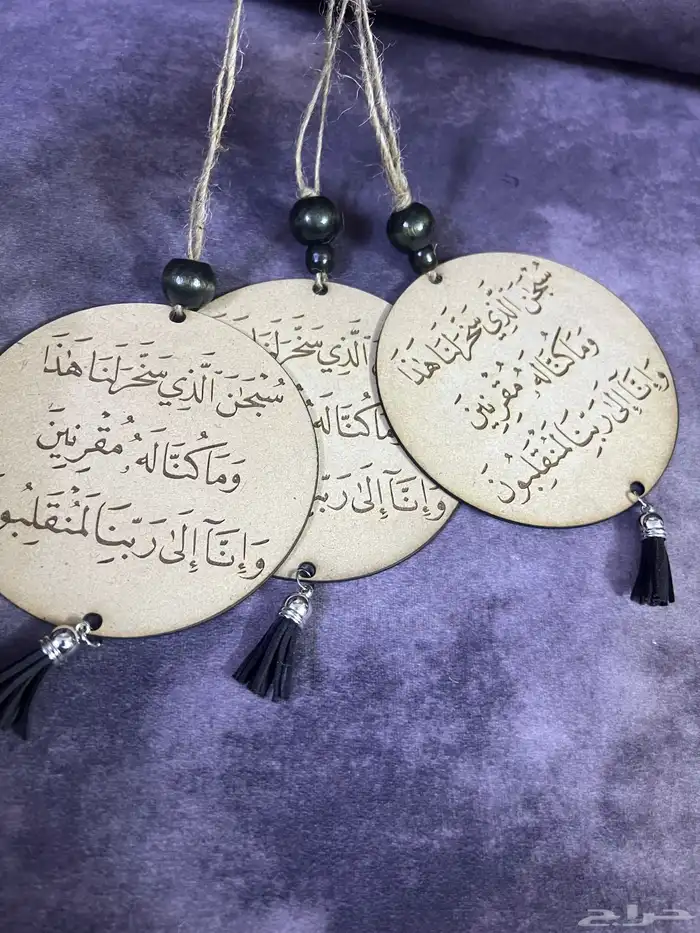 سُبْحَٰنَ ٱلَّذِي سَخَّرَ لَنَا هَٰذَا
وَمَا كُنَّا لَهُۥ مُقْرِنِينَ
وَإِنَّآ إِلَىٰ رَبِّنَا لَمُنقَلِبُو
ٱلَّذِي سَخَّرَ لَ
مَا كُنَّا لَهُ
وَإِنَّآ إِلَىٰ رَبِّ
سُبْحَٰنَ ٱلَّذِي سَخَّرَ لَنَا هَٰذَا
وَمَا كُنَّا لَهُۥ مُقْرِنِينَ
وَإِنَّآ إِلَىٰ رَبِّنَا لَمُنقَلِبُونَ
حراج